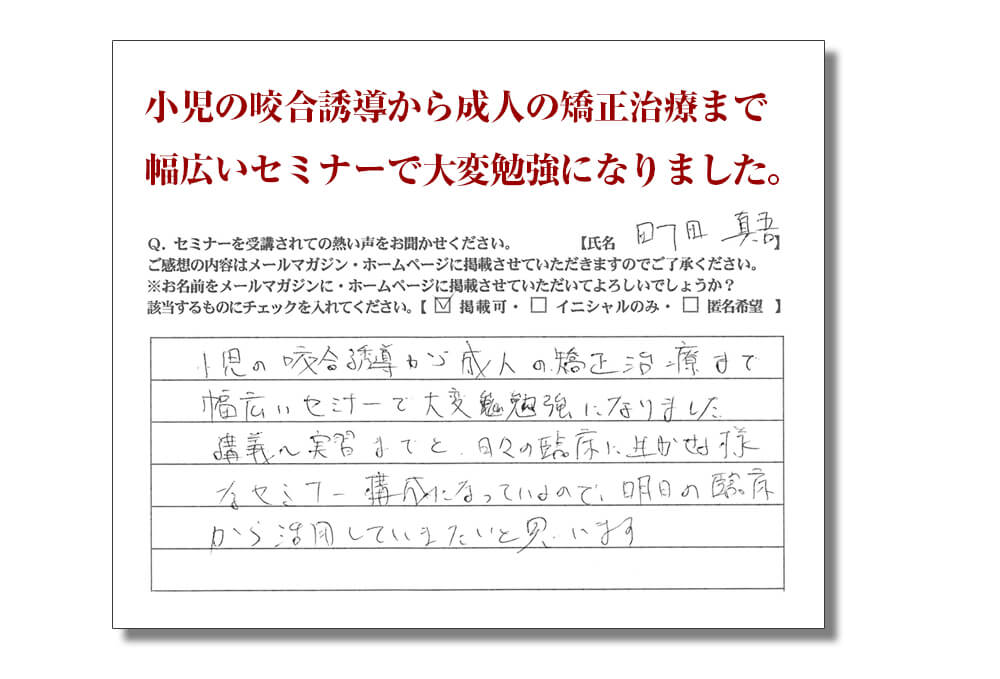 小児の咬合誘導から成人の矯正治療まで
幅広いセミナーで大変勉強になりました。
Q．セミナーを受講されての熱い声をお聞かせください。 【氏名 町田 真吾】
ご感想の内容はメールマガジン・ホームページに掲載させていただきますのでご了承ください。
※お名前をメールマガジンに・ホームページに掲載させていただいてよろしいでしょうか？
該当するものにチェックを入れてください。【☑ 掲載可・□ イニシャルのみ・□ 匿名希望 】
小児の咬合誘導から成人の矯正治療まで
幅広いセミナーで大変勉強になりました
講義〜実習までと、日々の臨床に生かせる様
なセミナー構成になっているので、明日の臨床
から活用していきたいと思います